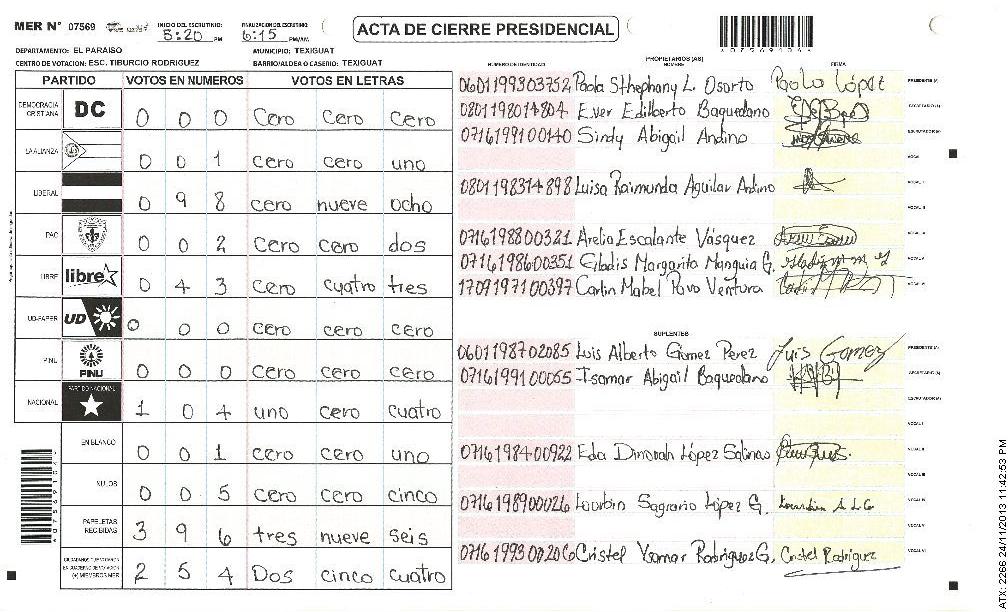 MER N° 07569
INICIO DEL ESCRUTINIO: 5:20 PM
FINALIZACION DEL ESCRUTINIO: 6:15 PM/AM.
ACTA DE CIERRE PRESIDENCIAL
DEPARTAMENTO: EL PARAISO
MUNICIPIO: TEXIGUAT
CENTRO DE VOTACION: ESC. TIBURCIO RODRIGUEZ
BARRIO/ALDEA O CASERIO: TEXIGUAT
PARTIDO VOTOS EN NUMEROS VOTOS EN LETRAS
DEMOCRACIA CRISTIANA DC 0 0 0 cero cero cero
LA ALIANZA 0 0 1 cero cero uno
LIBERAL 0 9 8 cero nueve ocho
PAC 0 0 2 cero cero dos
LIBRE libre 0 4 3 cero cuatro tres
UD-FAPER UD 0 0 0 cero cero cero
PINU PINU 0 0 0 cero cero cero
NACIONAL PARTIDO NACIONAL 1 0 4 uno cero cuatro
EN BLANCO 0 0 1 cero cero uno
NULOS 0 0 5 cero cero cinco
PAPELETAS RECIBIDAS 3 9 6 tres nueve seis
2 5 4 Dos cinco cuatro
PROPIETARIOS (AS)
NUMERO DE IDENTIDAD NOMBRE FIRMA
0601199803752 Paola Sthephany L. Osorto Paola López PRESIDENTE (A)
0801198014804 Ever Edilberto Baquedano SECRETARIO (A)
0716199100140 Sindy Abigail Andino ESCRUTADOR (A)
VOCAL I
0801198314898 Luisa Raimunda Aguilar Andino VOCAL II
VOCAL III
0716198800321 Arelia Escalante Vásquez VOCAL IV
0716198600351 Gladis Margarita Munguia G. VOCAL V
1709197100397 Carlin Mabel Pavo Ventura VOCAL VI
SUPLENTES
0601198702085 Luis Alberto Gómez Perez Luis Gomez PRESIDENTE (A)
0716199100055 Isamar Abigail Baquedano SECRETARIO (A)
ESCRUTADOR (A)
VOCAL I
0716198400922 Eda Dinorah López Salinas VOCAL II
VOCAL III
0716198900026 Lourbin Sagrario López G. VOCAL IV
VOCAL V
0716199300206 Cristel Ysamar Rodriguez G. Cristel Rodriguez VOCAL VI
ATX: 2266 24/11/2013 11:42:53 PM